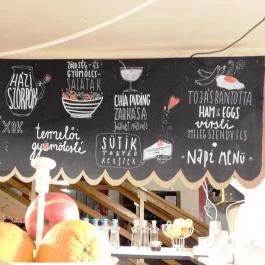 HÁZI
SZÖRPÖK
termelői
gyümölcslé
ZÖLDSÉG- ÉS
GYÜMÖLCS-
SALÁTÁK
CHIA PUDING
ZABKÁSA
SÜTIK
TORTÁK
TOJÁSRÁNTOTTA
HAM & EGGS
virsli
MELEGSZENDVICS
NAPI MENÜ